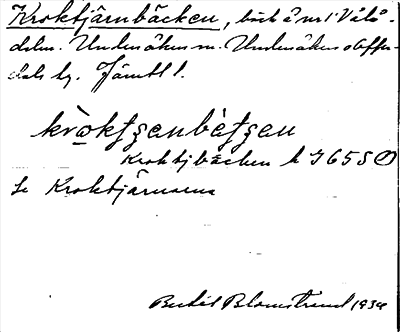 Kroktjärnbäcken, bäck å nr 1 Vålå-
dalen. Undersåkers sn. Undersåkers o Offer-
dals tg. Jämtl l.
kròktʂenbètʂen
Kroktjbäcken k 765S
Se Kroktjärnarna
Bertil Blomstrand 1934